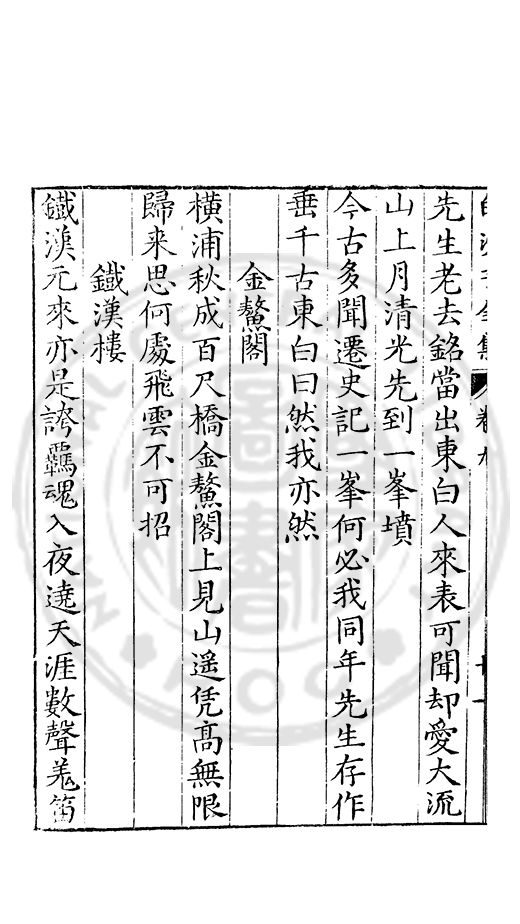 白沙子全集 卷九
先生老去銘當出東白人來表可聞却愛大流
山上月清光先到一峯墳
今古多聞遷史記一峯何必我同年先生存作
垂千古東白曰然我亦然
金鰲閣
橫浦秋成百尺橋金鰲閣上見山遥凭髙無限
歸来思何處飛雲不可招
鐵漢樓
鐵漢元來亦是誇覊魂入夜遶天涯數聲羗笛